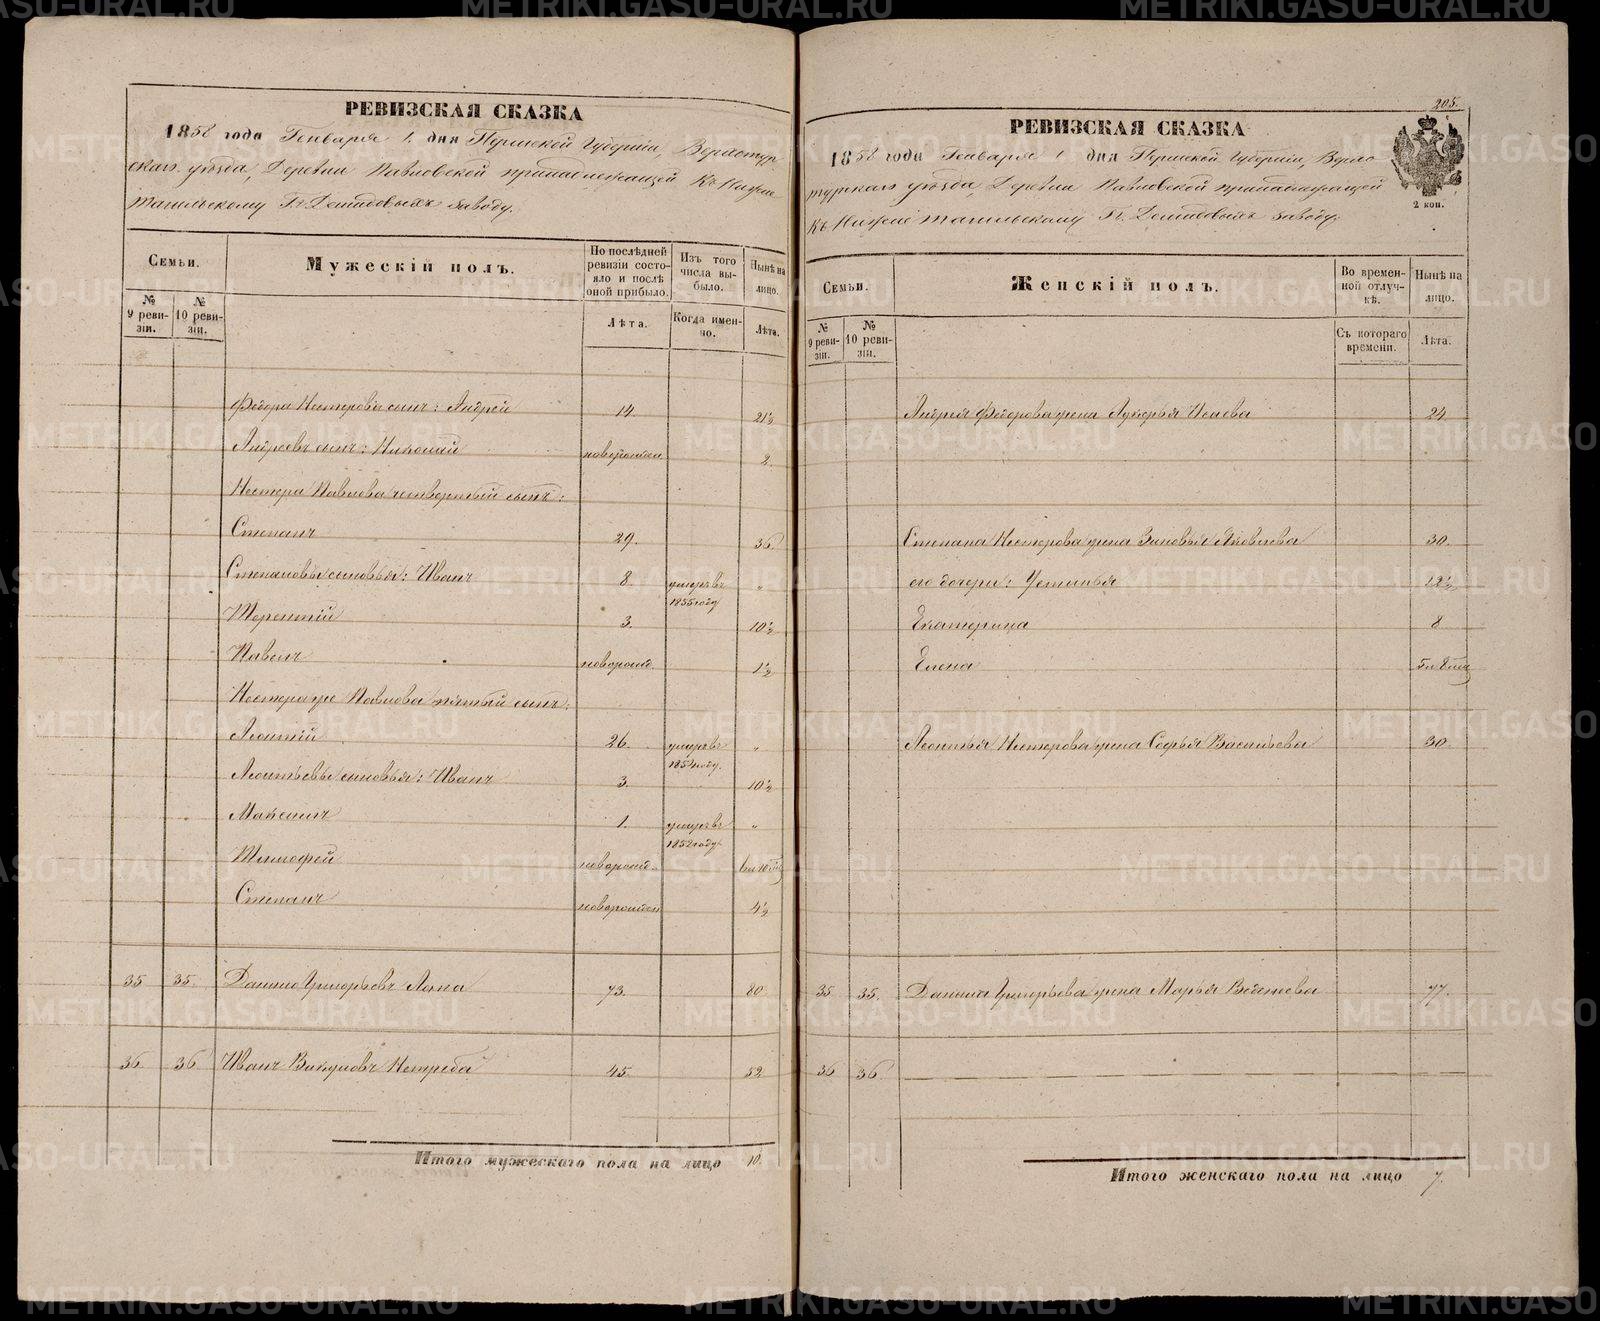 РЕВИЗСКАЯ СКАЗКА
1858 года Генваря 1. дня Пермской Губерніи, Верхотур-
скаго уѣзда, Деревни Павловской принадлежащей Къ Нижне
Тагильскому Гг. Демидовыхъ заводу.
Семьи.
№ 9 реви-зіи.
№ 10 реви-зіи.
Мужескій полъ.
По послѣдней ревизіи состо-яло и послѣ оной прибыло.
Лѣта.
Изъ того числа вы-было.
Когда имен-но.
Нынѣ на лицо.
Лѣта.
Федора Нестерова сынъ: Андрей 14. 21½
Андреевъ сынъ: Николай новорожден 2.
Нестера Павлова четвертый сынъ:
Степанъ 29. 36.
Степановы сыновья: Иванъ 8. умеръ въ 1855 году „
Терентій 3. 10½
Павелъ новорожд. 1½
Нестера же Павлова пятый сынъ:
Леонтій 26. умеръ въ 1854 году. „
Леонтьевы сыновья: Иванъ 3. 10½
Максимъ 1. умеръ въ 1852 году. „
Тимофей новорожд.
Степанъ новорожден 4½
35 35. Данило Григорьевъ 73. 80
36. 36 Иванъ Викуловъ Нетреба 45. 52
Итого мужескаго пола на лицо 10.
205.
РЕВИЗСКАЯ СКАЗКА
1858 года Генваря 1 дня Пермской Губерніи, Верхо
турскаго уѣзда, Деревни Павловской принадлежащей
Къ Нижне Тагильскому Гг. Демидовыхъ заводу.
2 коп.
Семьи.
№ 9 реви-зіи.
№ 10 реви-зіи.
Женскій полъ.
Во времен-ной отлуч-кѣ.
Съ котораго времени.
Нынѣ на лицо.
Лѣта.
Андрея Федорова жена Лукерья Исаева 24
Степана Нестерова жена Зиновья Яковлева 30.
его дочери: Устинья 12½
Екатерина 8
Елена
Леонтья Нестерова жена Софья Васильева 30.
35 35. Данила Григорьева жена Марья 77.
36 36.
Итого женскаго пола на лицо 7.
METRIKI.GASO-URAL.RU